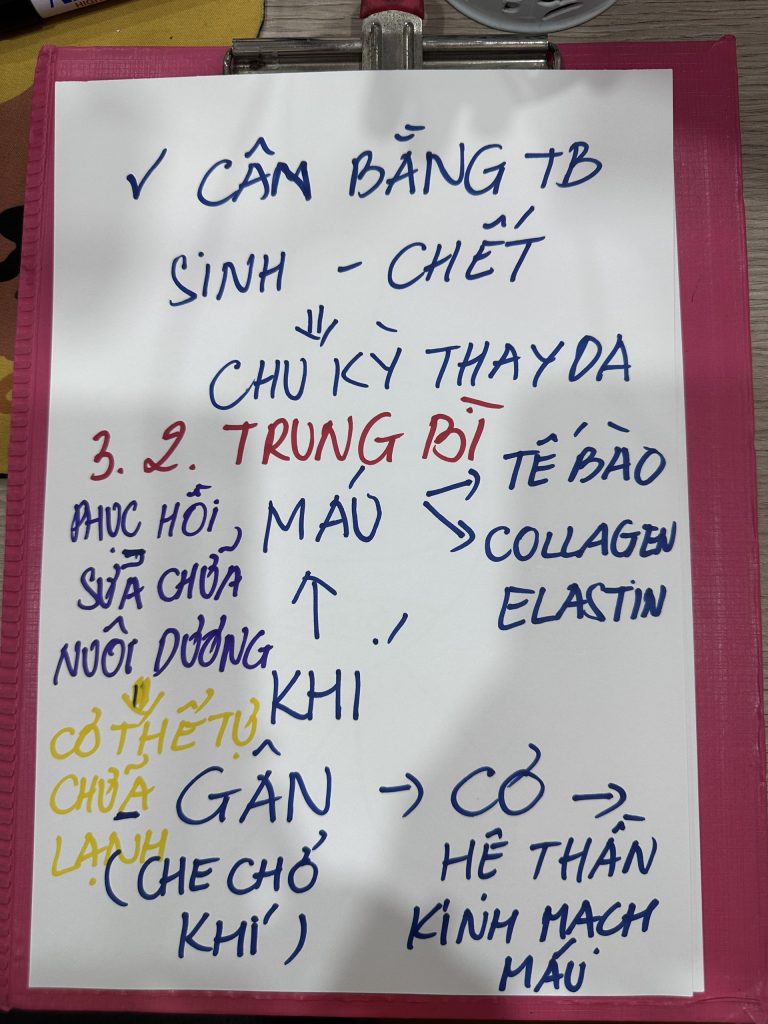 ✓ CÂN BẰNG TB
SINH - CHẾT
⇓
CHU KỲ THAY DA
3.2. TRUNG BÌ
PHỤC HỒI,
SỬA CHỮA
NUÔI DƯỠNG
⇓
CƠ THỂ TỰ
CHỮA
LÀNH
MÁU
→ TẾ BÀO
→ COLLAGEN
ELASTIN
↑
KHÍ
GÂN → CƠ →
(CHE CHỞ
KHÍ)
HỆ THẦN
KINH MẠCH
MÁU